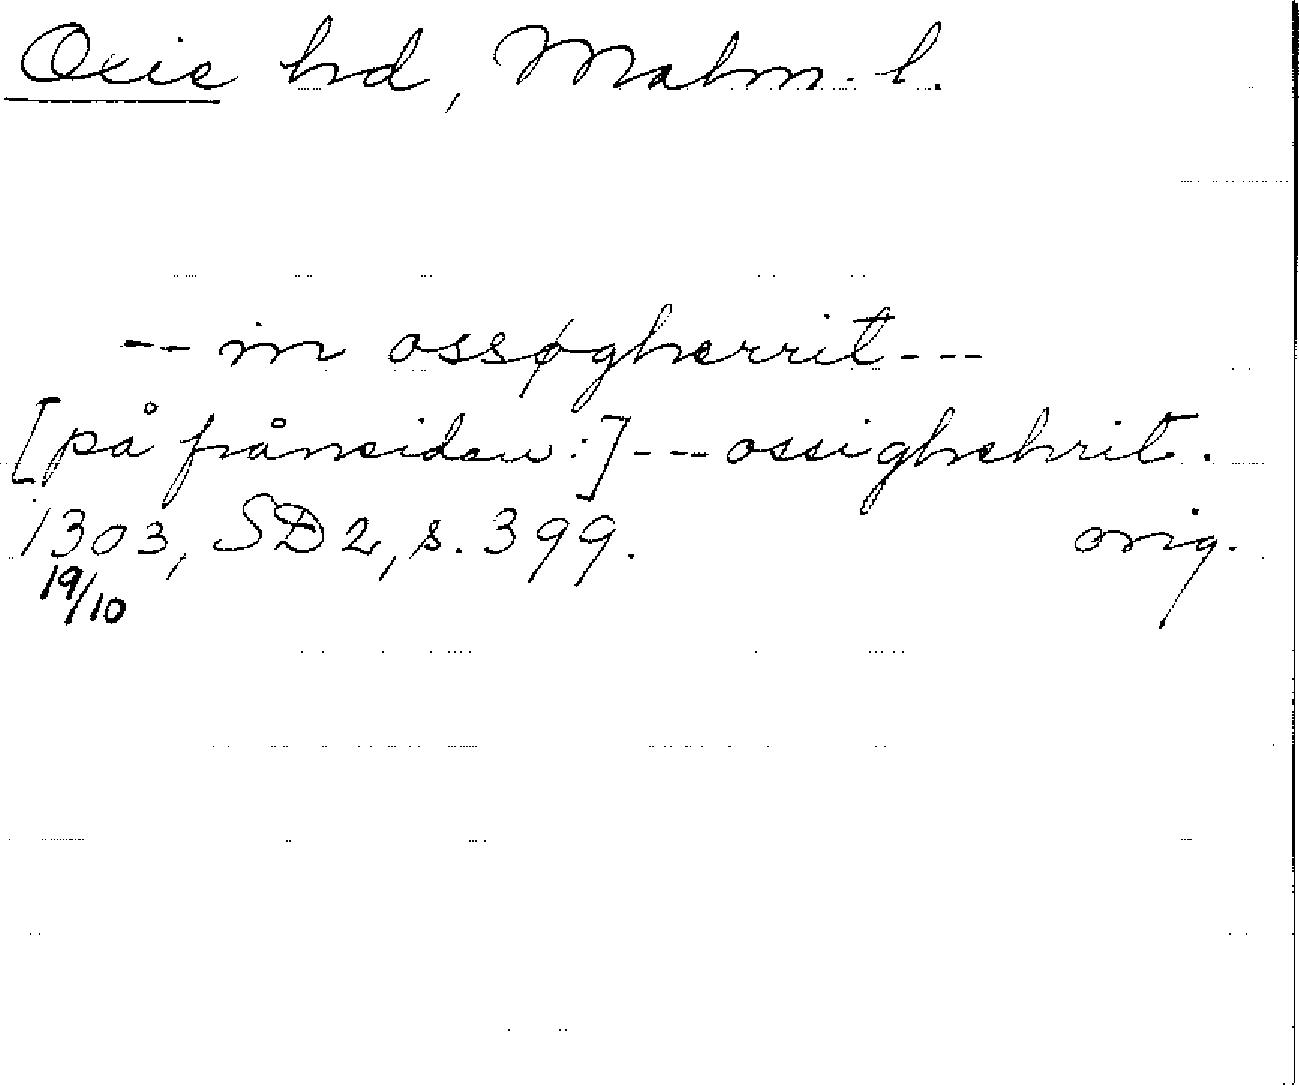 Oxie hd, Malm. l.
-- in ossøgherrit ---
[på frånsidan:] --- ossighehrit.
1303, SD 2, s. 399. orig.
19/10